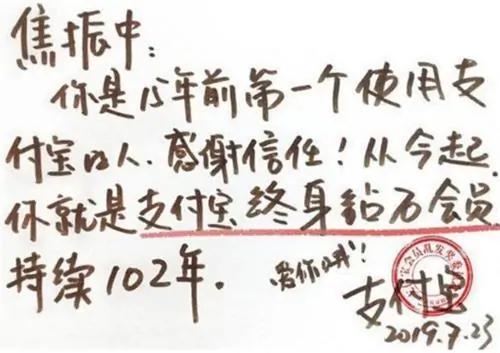 焦振中：
你是15年前第一个使用支
付宝的人。感谢信任！从今起，
你就是支付宝终身钻石会员，
持续102年。
爱你哦！
支付宝
2019.7.23